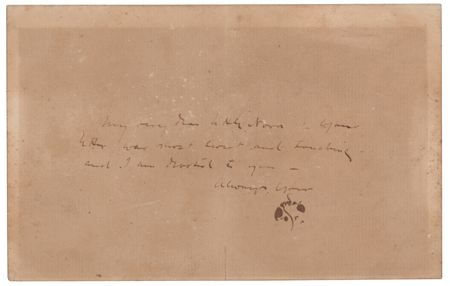 My very dear little Nora – Your
letter was most sweet and touching
and I am devoted to you –
Always Yours